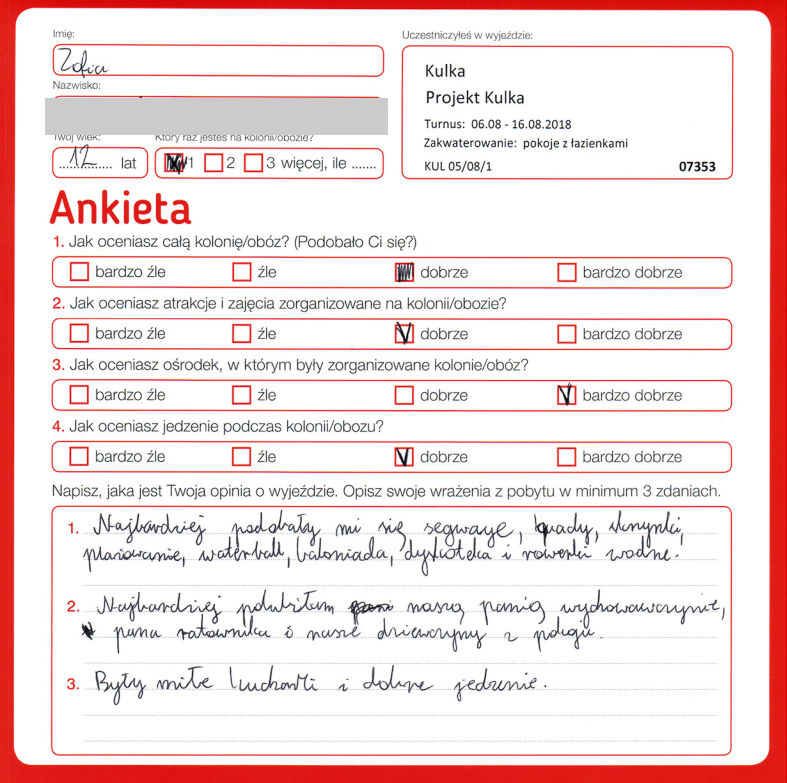 Imię:
Zofia
Nazwisko:
Twój wiek:
12 lat
Który raz jesteś na kolonii/obozie?
1 2 3 więcej, ile .......
Uczestniczyłeś w wyjeździe:
Kulka
Projekt Kulka
Turnus: 06.08 - 16.08.2018
Zakwaterowanie: pokoje z łazienkami
KUL 05/08/1 07353
Ankieta
1. Jak oceniasz całą kolonię/obóz? (Podobało Ci się?)
bardzo źle źle dobrze bardzo dobrze
2. Jak oceniasz atrakcje i zajęcia zorganizowane na kolonii/obozie?
bardzo źle źle dobrze bardzo dobrze
3. Jak oceniasz ośrodek, w którym były zorganizowane kolonie/obóz?
bardzo źle źle dobrze bardzo dobrze
4. Jak oceniasz jedzenie podczas kolonii/obozu?
bardzo źle źle dobrze bardzo dobrze
Napisz, jaka jest Twoja opinia o wyjeździe. Opisz swoje wrażenia z pobytu w minimum 3 zdaniach.
1. Najbardziej podobały mi się segwaye, quady, skrzynki,
plażowanie, waterball, baloniada, dyskoteka i rowerki wodne.
2. Najbardziej polubiłam naszą panią wychowawczynię,
pana ratownika i nasze dziewczyny z pokoju.
3. Były miłe kucharki i dobre jedzenie.